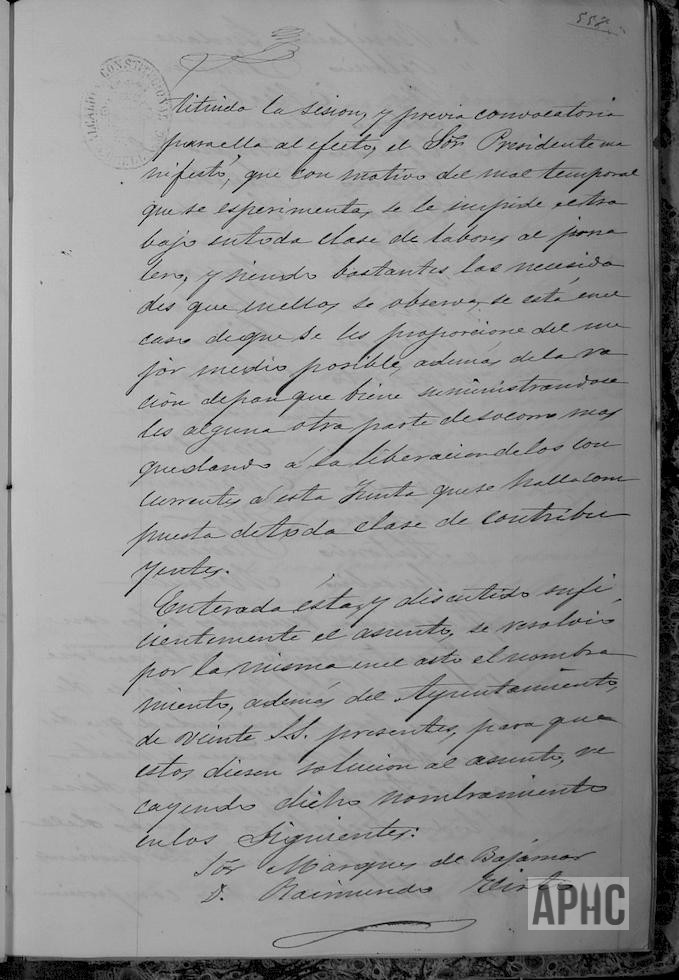 558
ALCALDIA CONSTITUCIONAL
tituida la sesion, y previa convocatoria
para ella al efecto, el Sôr Presidente ma
nifestó, que con motivo del mal temporal
que se esperimenta, se le impide el tra
bajo en toda clase de labores al jorna
lero, y siendo bastantes las necesida
des que en ellos se observa, se está en el
caso de que se les proporcione del me
jor medio posible, además de la ra
ción de pan que biene suministrandose
les alguna otra parte de socorro mas
quedando á la liberacion de los con
currentes á esta Junta que se halla com
puesta de toda clase de contribu
yentes.
Enterada ésta, y discutido sufi
cientemente el asunto, se resolvió
por la misma en el acto el nombra
miento, además del Ayuntamiento,
de veinte S.S. presentes, para que
estos diesen solucion al asunto, re
cayendo dicho nombramiento
en los Siguientes:
Sôr Marques de Bajamar
D. Raimundo
APHC